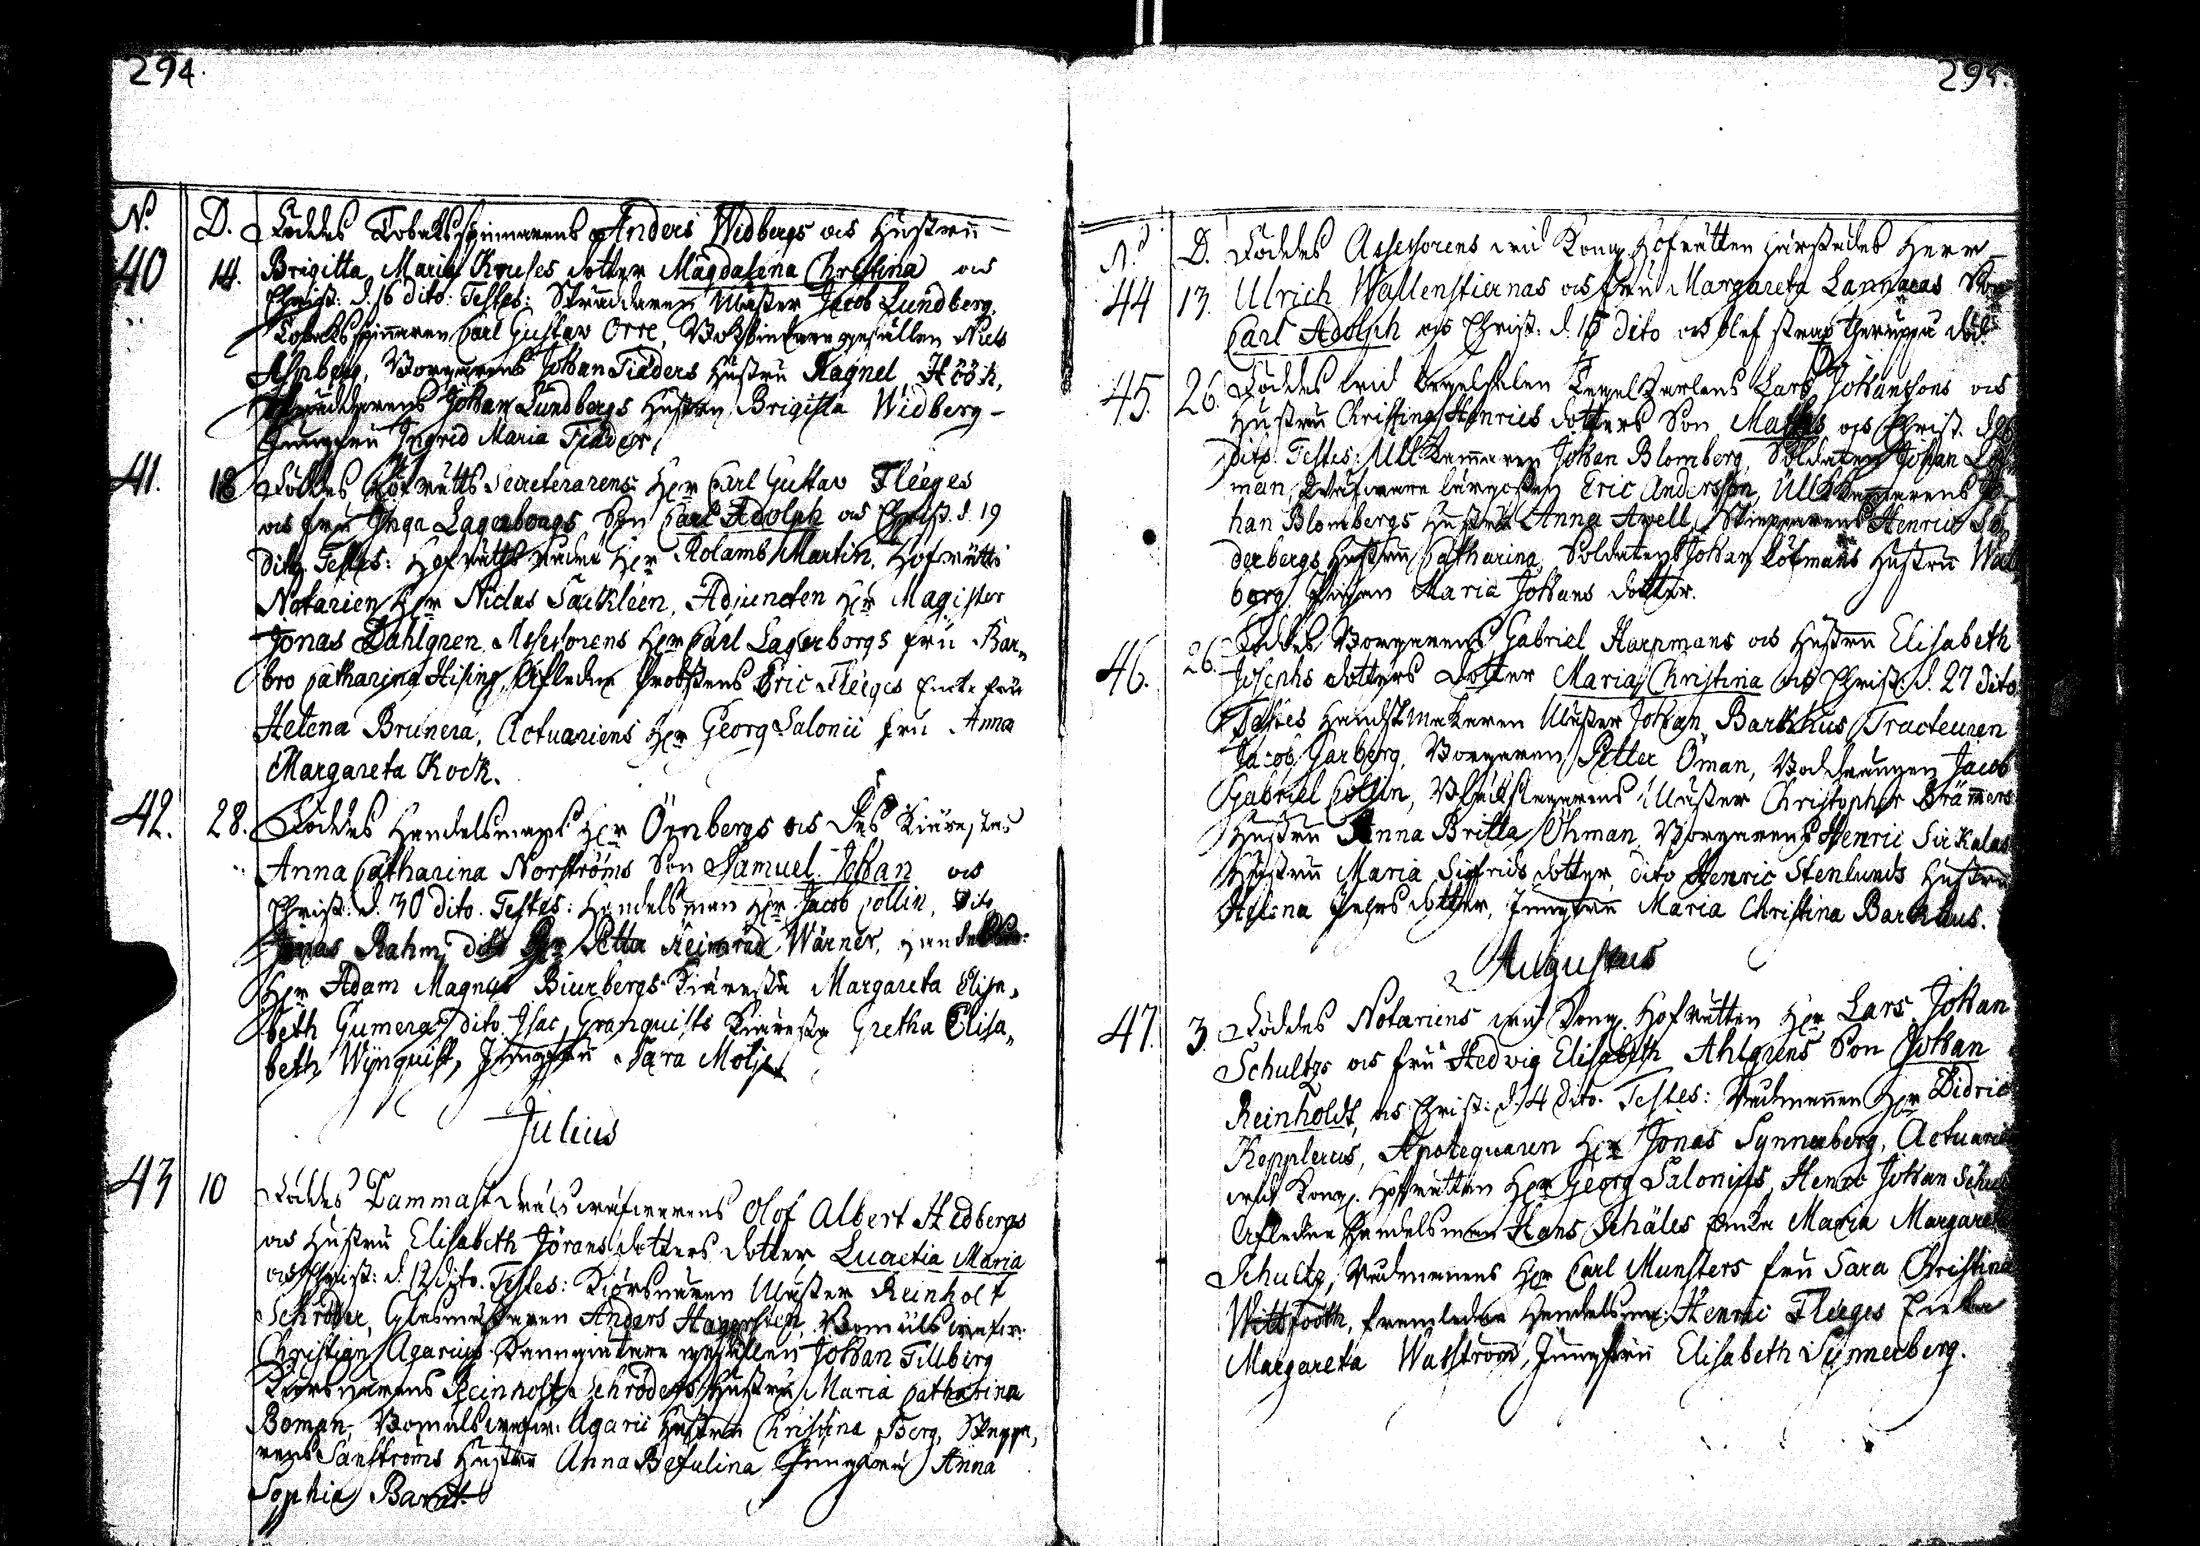 294.
N. D. Föddes Tobaksspinnarens Anders Widbergs och Hustru
40 14. Brigitta Maria Kruses dotter Magdalena Christina och
Christ: d. 16 dito. Testes: Skräddaren Mäster Jacob Lundberg,
Tobaksspinnaren Carl Gustav Orre, gesällen Niels
Borgarens Johan Tiäders Hustru Ragnel Höök,
Skräddarens Johan Lundbergs Hustru Brigitta Widberg
Jungfru Ingrid Maria Tiäder.
41. 18 Föddes Hofrätts Secreterarens Herr Carl Gustav Fleeges
och Fru Inga Lagerborgs Son Carl Adolph och Christ. d. 19
Dito. Testes: Hofrätts rådet Herr Rolamb Martin, Hofrätts
Notarien Herr Niclas Sackleen, Adjuncten Herr Magister
Jonas Dahlgren, Assessorens Herr Carl Lagerborgs Fru Bar-
bro Catharina Hising, Afledne Probstens Eric Fleeges Enka Fru
Helena Brunera, Actuariens Herr Georg Salonii Fru Anna
Margareta Kock.
42. 28. Föddes Handelsmans Herr Örnbergs och Des Kiärestas
Anna Catharina Norströms Son Samuel Johan och
Christ: d. 30 dito. Testes: Handelsman Herr Jacob Collin, Dito
Jonas Rahm, dito Herr Petter Reinrad Wärner, Handelsm:
Herr Adam Magnus Biurbergs Kiäresta Margareta Elisa-
beth Gumera, dito Isac Granquists Kiäresta Gretha Elisa-
beth Wynquist, Jungfru Sara Molje
Julius
43 10 Föddes Dammast Olof Albert Hedbergs
och Hustru Elisabeth Jörans dotters dotter Lucretia Maria
och Christ: d. 12 dito. Testes: Körsnären Mäster Reinholt
Schröder, Glasmästaren Anders Hagersten,
Christian Agarius Kanngiutare gesällen Johan Tillberg
Körsnärens Reinholt Schröders Hustru Maria Catharina
Boman, Agarii Hustru Christina Berg, Skeppa-
rens Sanströms Hustru Anna Befulina Jungfru Anna
Sophia
295.
N. D. Föddes Assessorens wid Kong. Hofrätten härstädes Herr
44 13. Ulrich Wallenstiernas och Fru Margareta Lannaeas Son
Carl Adolph och Christ: d. 15 dito och blef strax deruppå död
45. 26. Föddes Lars Johanssons och
Hustru Christina Henrics dotters Son Mathis och Christ. d.
dito. Testes: Ullkammaren Johan Blomberg, Soldaten Johan Löf-
man, Eric Andersson, Ullkammarens Jo-
han Blombergs Hustru Anna Avell, Skepparens Henric Sö-
derbergs Hustru Catharina, Soldatens Johan Löfmans Hustru Wal
borg, Pigan Maria Johans dotter.
46. 26. Föddes Borgarens Gabriel Harpmans och Hustru Elisabeth
Josephs dotters Dotter Maria Christina och Christ: d. 27 dito
Testes Handskmakaren Mäster Johan Barkhus Tracteuren
Jacob Garberg, Borgaren Petter Öman, Jacob
Gabriel Collin, Mäster Christopher Brämmers
Hustru Anna Britta Öhman, Borgarens Henric Sirkalas
Hustru Maria Sigfrids dotter, dito Henric Stenlunds Hustru
Helena Pehrs dotter, Jungfru Maria Christina Barkhaus.
Augustus
47. 3. Föddes Notariens wid Kong. Hofrätten Herr Lars Johan
Schultzs och Fru Hedvig Elisabeth Ahlgrens Son Johan
Reinholdt, och Christ: d. 4 dito. Testes: Rådmannen Herr Didric
Kepplerus, Apotequaren Herr Jonas Synnerberg, Actuarien
wid Kong. Hofrätten Herr Georg Salonius, Henric Johan
Afledne Handelsman Hans Schäles Enka Maria Margareta
Schultz, Rådmannens Herr Carl Munsters Fru Sara Christina
Wittfooth, framledne Handelsman Henric Fleeges Enka
Margareta Watström, Jungfru Elisabeth Synnerberg.